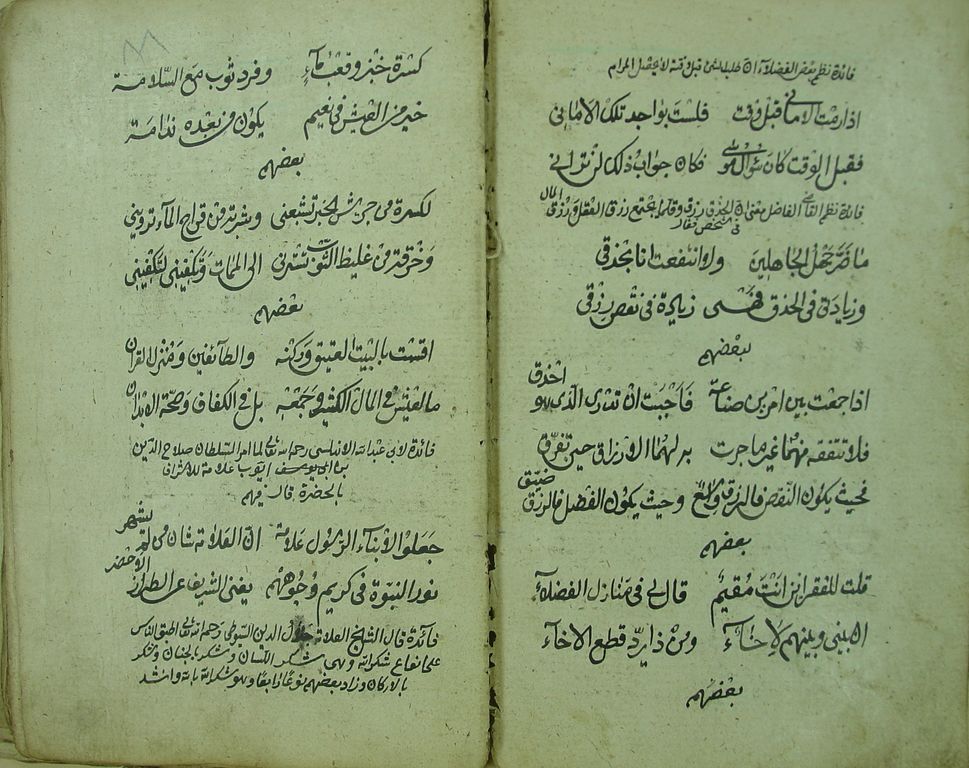 فائدة نظم بعض الفضلاء ان طلب الشئ قبل وقته لا يحصل المرام
اذا رمت الاماني قبل وقت فلست بواجد تلك الاماني
فقبل الوقت كان سؤال موسى فكان جواب ذلك لن تراني
فائدة نظم القاضي الفاضل معنى ان الحذق رزق وقلما يجتمع رزق العقل ورزق المال
في شخص فقال
ما ضر جهل الجاهلين ولا انتفعت انا بحذقي
وزيادتي في الحذق فهي زيادة في نقص رزقي
لبعضهم
اذا جمعت بين امرين صناعة فاحببت ان تدري الذي هو احذق
فلا تتفقد منهما غير ما جرت به لهما الارزاق حين تفرق
فحيث يكون النقص فالرزق واسع وحيث يكون الفضل فالرزق ضيق
بعضهم
قلت للفقر اين انت مقيم قال لي في منازل الفضلاء
ان بيني وبينهم لاخاء ومن ذا يرد قطع الاخاء
بعضهم
كسرة خبز وقعب ماء وفرد ثوب مع السلامة
خير من العيش في نعيم يكون من بعده ندامة
بعضهم
لكسرة من جريش الخبز تشبعني وشربة من قراح الماء ترويني
وخرقة من غليظ الثوب تسترني الى الممات وتكفيني لتكفيني
بعضهم
اقسمت بالبيت العتيق وركنه والطائفين ومنزل القران
ما العيش في المال الكثير وجمعه بل في الكفاف وصحة الابدان
فائدة لابي عبد الله الاندلسي رحمه الله تعالى لما امر السلطان صلاح الدين
بن ابي يوسف ايوب علامة للاشراف
بالحضرة قال فيهم
جعلوا لابناء الرسول علامة ان العلامة شان من لم يشهر
نور النبوة في كريم وجوههم يغني الشريف عن الطراز الاخضر
فائدة قال الشيخ العلامة جلال الدين السيوطي رحمه الله تعالى اطبق الناس
على انواع شكر الله وهي شكر اللسان وشكر بالجنان وشكر
بالاركان وزاد بعضهم نوعا رابعا وهو شكر الله بالله وانشد